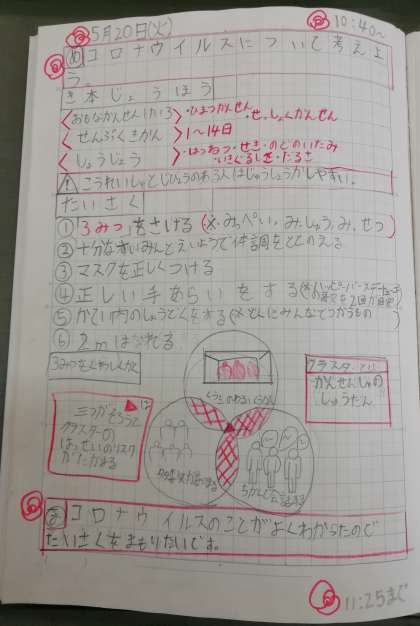 5月20日(火) 10:40~
め コロナウイルスについて考えよ
う。
き本じょうほう
おもなかんせんけいろ ・ひまつかんせん ・せっしょくかんせん
せんぷくきかん 1~14日
しょうじょう ・はつねつ・せき・のどのいたみ
・いきぐるしさ・だるさ
こうれいしゃとじびょうのある人はじゅうしょうかしやすい。
たいさく
① 3みつをさける(※みっぺい、みっしゅう、みっせつ)
② 十分なすいみんとえいようで体調をととのえる
③ マスクを正しくつける
④ 正しい手あらいをする(※ハッピーバースデートゥーユーの
⑤ かてい内のしょうどくをする(※とくにみんなでつかうもの)
⑥ 2mはなれる
3みつをくわしくかく
クラスターとは
かんせんしゃの
しゅうだん
三つがそろうと
クラスターの
はっせいのリスク
がたかまる
ま コロナウイルスのことがよくわかったので
たいさくをまもりたいです。
11:25まで